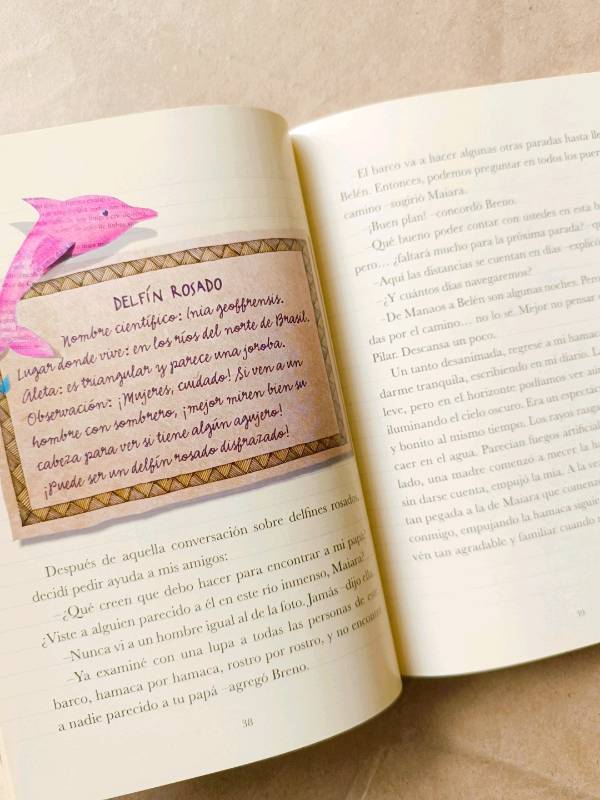 DELFÍN ROSADO
Nombre científico: Inia geoffrensis.
Lugar donde vive: en los ríos del norte de Brasil.
Aleta: es triangular y parece una joroba.
Observación: ¡Mujeres, cuidado! Si ven a un
hombre con sombrero, ¡mejor miren bien su
cabeza para ver si tiene algún agujero!
¡Puede ser un delfín rosado disfrazado!
Después de aquella conversación sobre delfines rosado,
decidí pedir ayuda a mis amigos:
–¿Qué creen que debo hacer para encontrar a mi papá?
¿Viste a alguien parecido a él en este río inmenso, Maiara?
–Nunca vi a un hombre igual al de la foto. Jamás –dijo ella.
–Ya examiné con una lupa a todas las personas de este
barco, hamaca por hamaca, rostro por rostro, y no encontré
a nadie parecido a tu papá –agregó Breno.
38
–El barco va a hacer algunas otras paradas hasta
Belén. Entonces, podemos preguntar en todos los
camino –sugirió Maiara.
–¡Buen plan! –concordó Breno.
Qué bueno poder contar con ustedes en esta
pero… ¿faltará mucho para la próxima parada?
–Aquí las distancias se cuentan en días
–¿Y cuántos días navegaremos?
–De Manaos a Belén son algunas noches.
das por el camino… no lo sé. Mejor no pensar
Pilar. Descansa un poco.
Un tanto desanimada, regresé a mi
darme tranquila, escribiendo en mi diario.
leve, pero en el horizonte podíamos ver
iluminando el cielo oscuro. Era un
y bonito al mismo tiempo. Los rayos
caer en el agua. Parecían fuegos
lado, una madre comenzó a mecer la
sin darse cuenta, empujó la mía. A la
tan pegada a la de Maiara que
conmigo, empujando la hamaca
vén tan agradable y familiar cuando
39